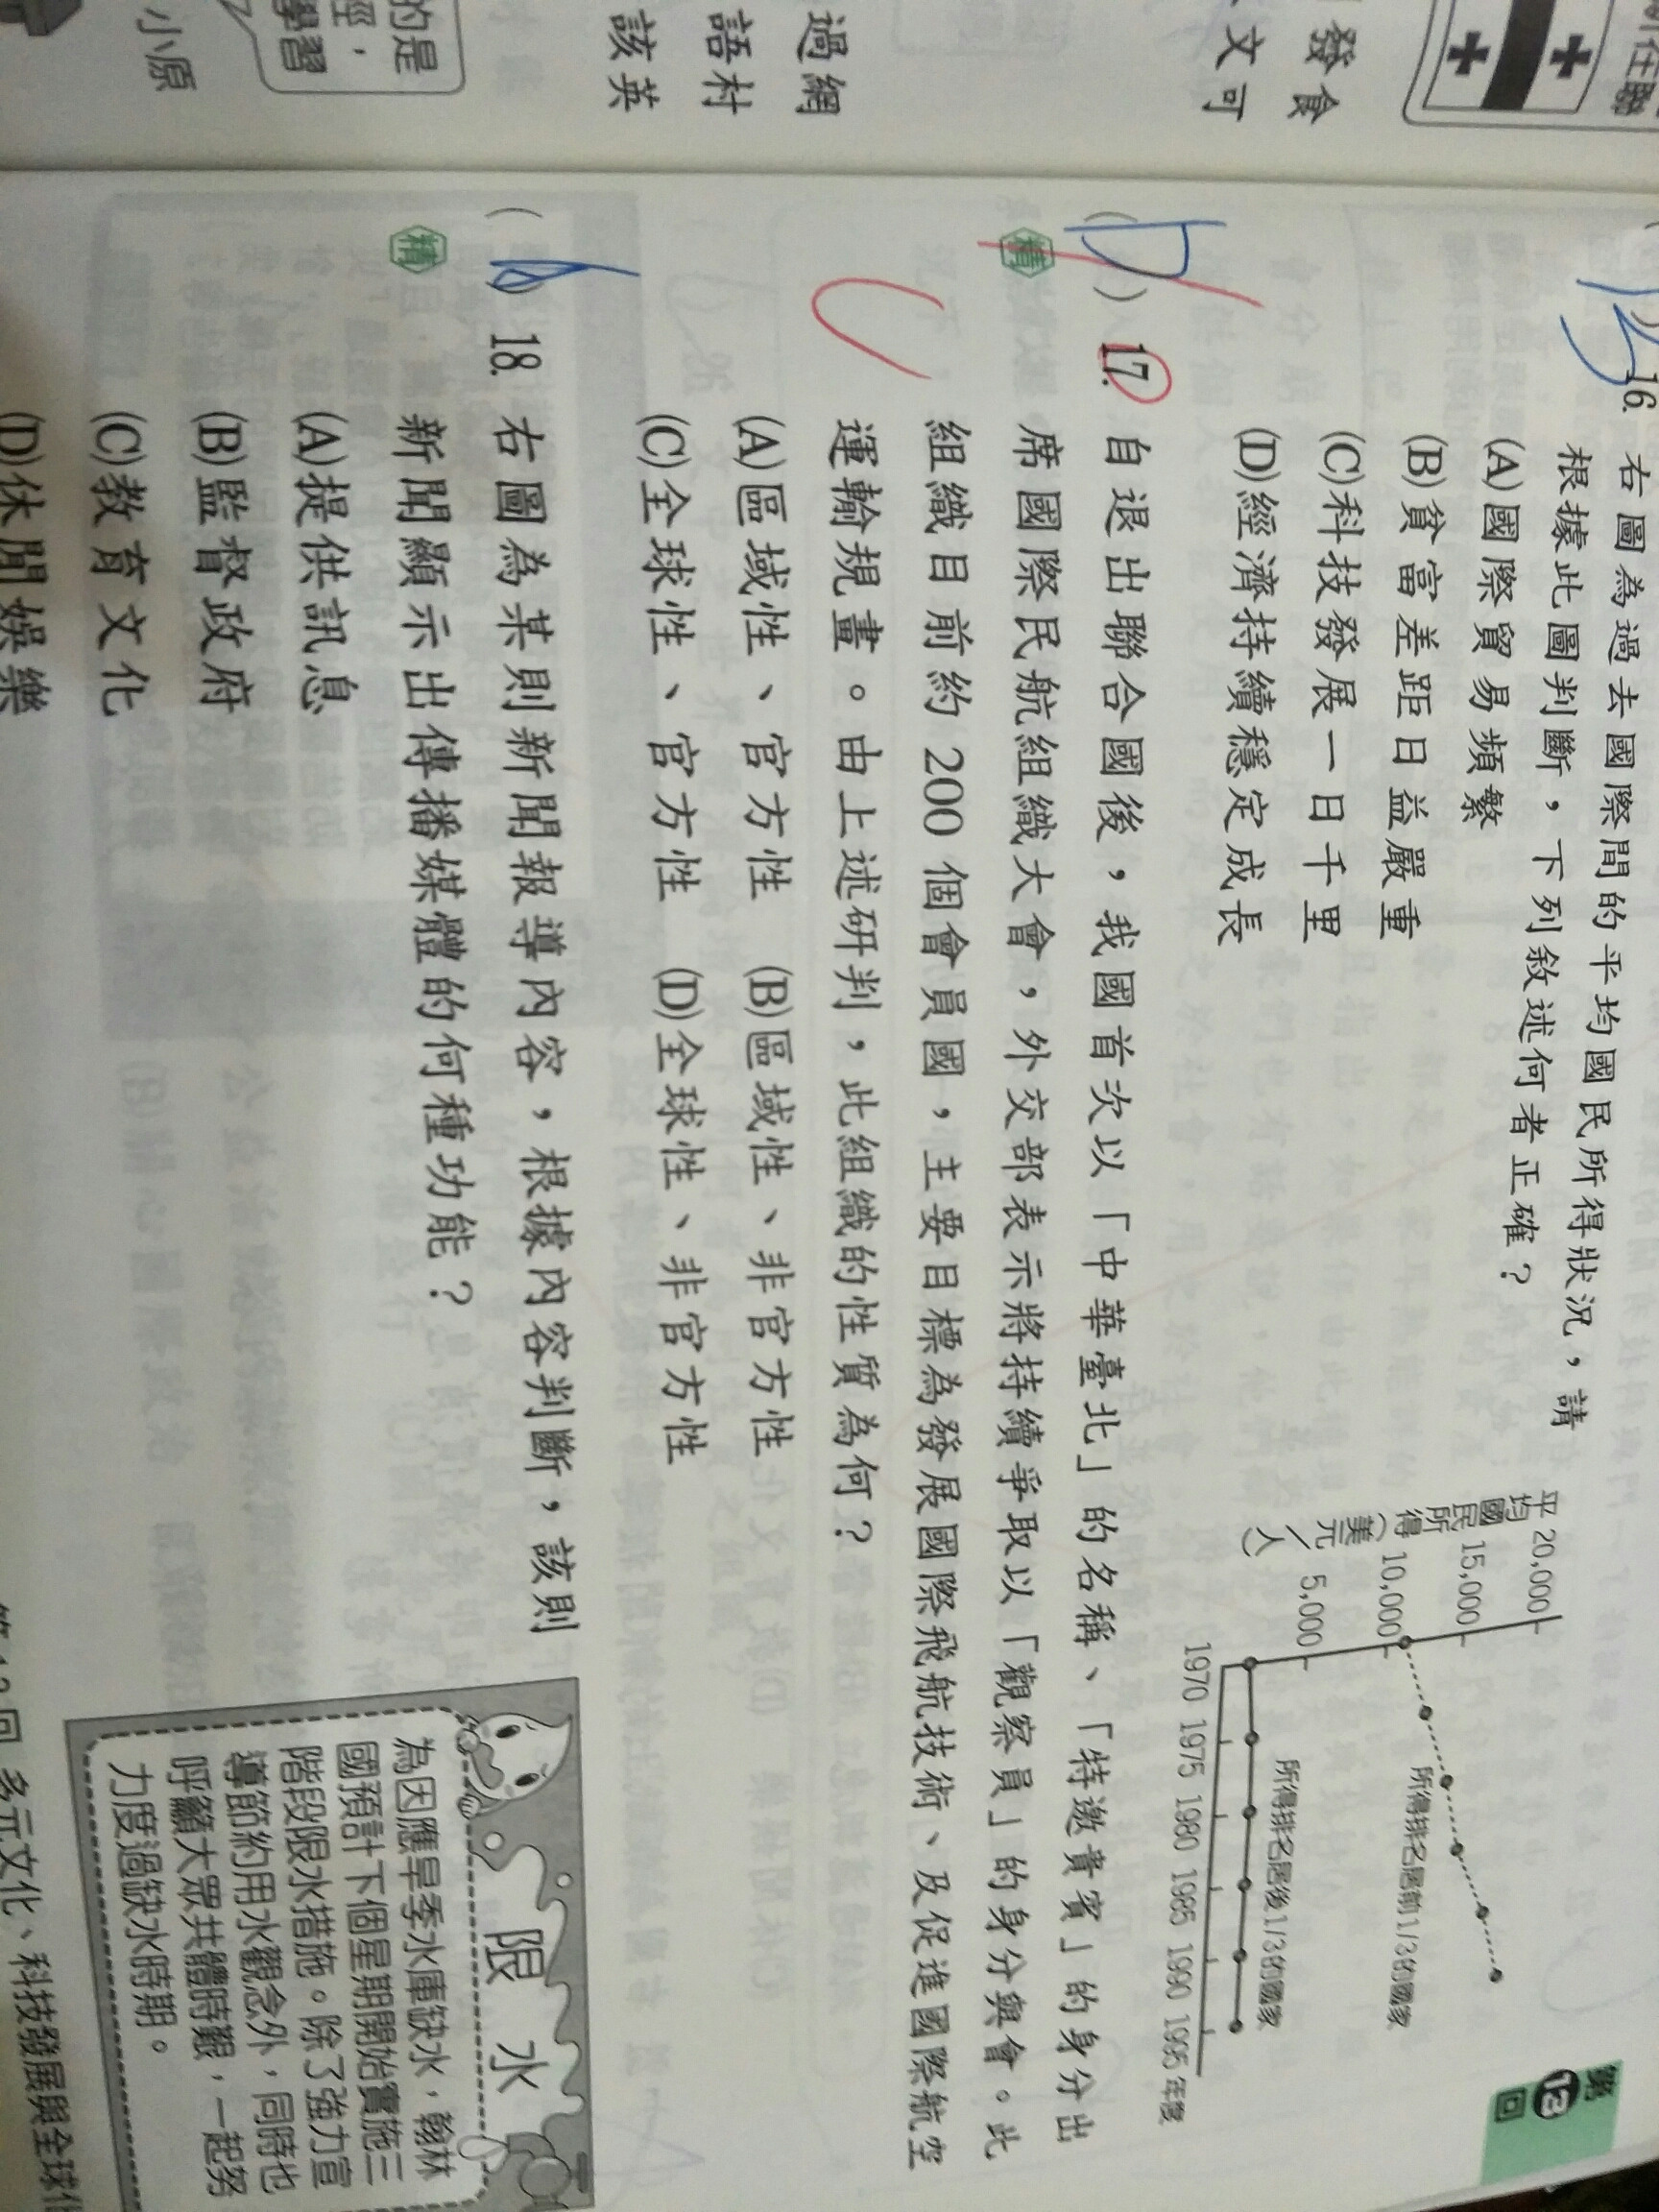 所在聯
發食
文可
過網
語村
該英
的是
經，
學習
小原
第
13
回
16. 右圖為過去國際間的平均國民所得狀況，請
根據此圖判斷，下列敘述何者正確？
(A)國際貿易頻繁
(B)貧富差距日益嚴重
(C)科技發展一日千里
(D)經濟持續穩定成長
平均國民所得（美元／人）
20,000
15,000
10,000
5,000
所得排名居前1/3的國家
所得排名居後1/3的國家
1970 1975 1980 1985 1990 1995 年度
( ) 17. 自退出聯合國後，我國首次以「中華臺北」的名稱、「特邀貴賓」的身分出
精 席國際民航組織大會，外交部表示將持續爭取以「觀察員」的身分與會。此
組織目前約 200 個會員國，主要目標為發展國際飛航技術、及促進國際航空
運輸規畫。由上述研判，此組織的性質為何？
(A)區域性、官方性 (B)區域性、非官方性
(C)全球性、官方性 (D)全球性、非官方性
( ) 18. 右圖為某則新聞報導內容，根據內容判斷，該則
精 新聞顯示出傳播媒體的何種功能？
(A)提供訊息
(B)監督政府
(C)教育文化
(D)休閒娛樂
限水
為因應旱季水庫缺水，翰林
國預計下個星期開始實施三
階段限水措施。除了強力宣
導節約用水觀念外，同時也
呼籲大眾共體時艱，一起努
力度過缺水時期。
第13回 多元文化、科技發展與全球化